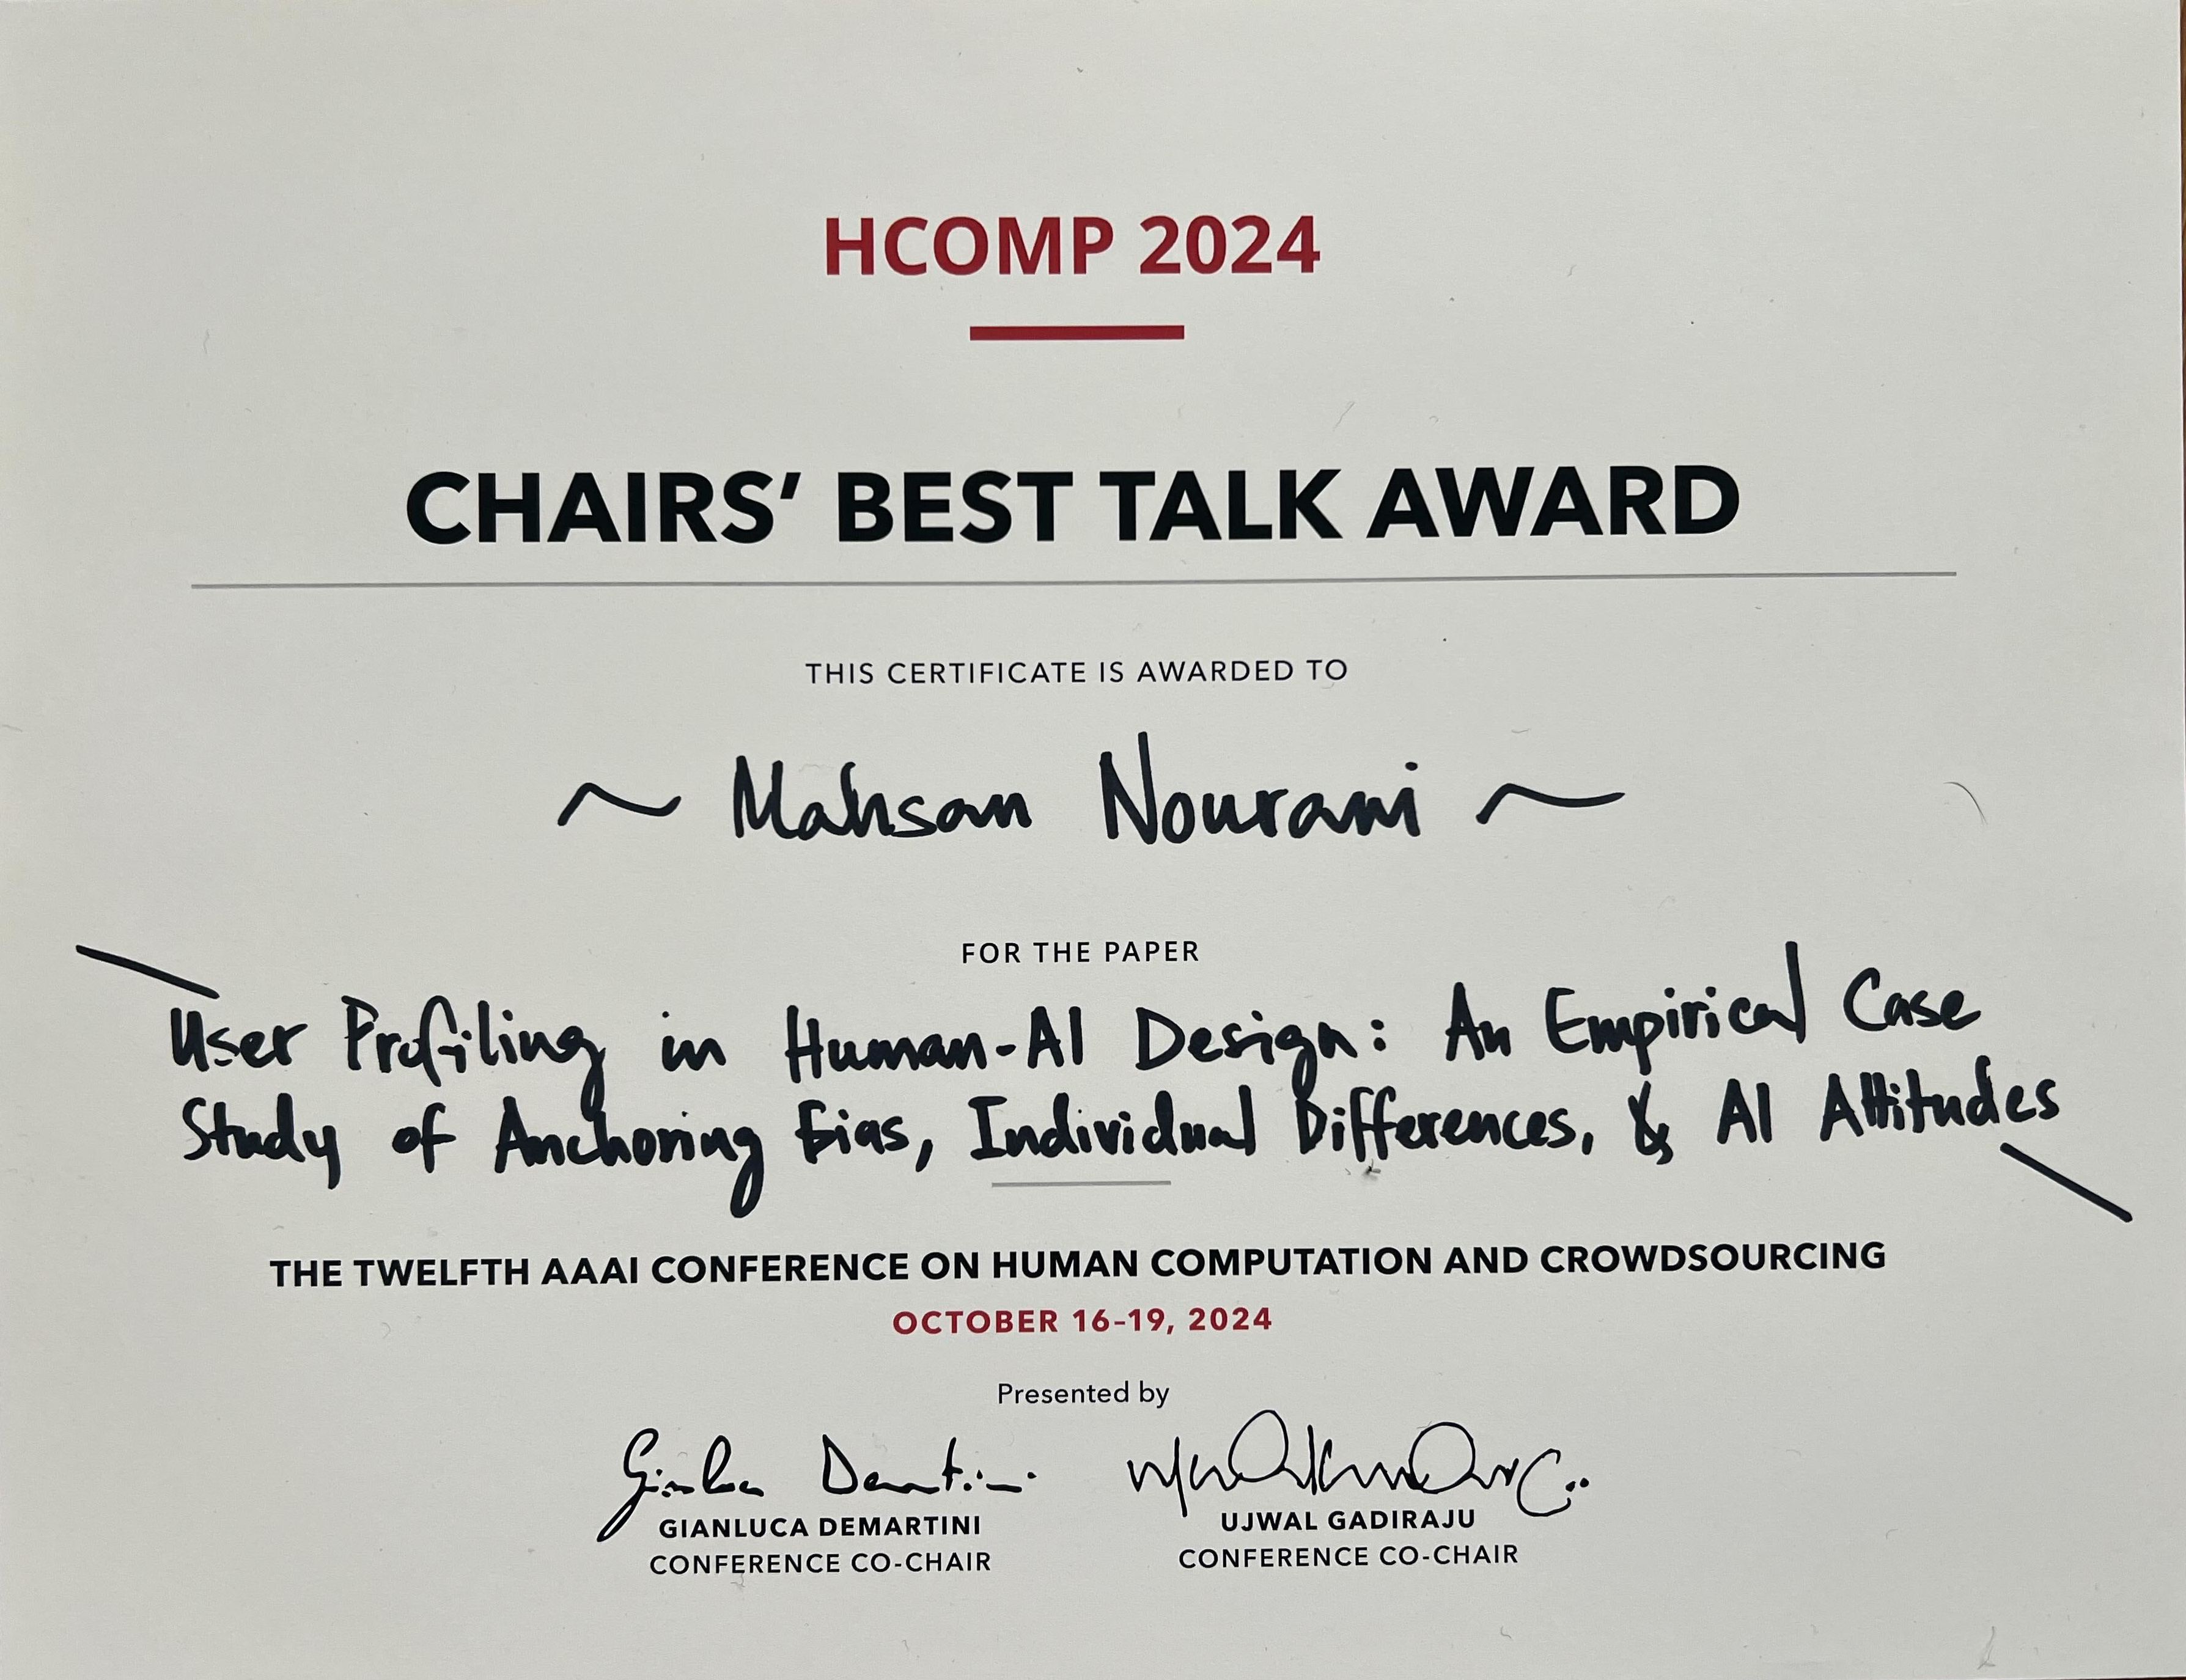 HCOMP 2024
CHAIRS’ BEST TALK AWARD
THIS CERTIFICATE IS AWARDED TO
~ Mahsan Nourani ~
FOR THE PAPER
User Profiling in Human-AI Design: An Empirical Case
Study of Anchoring Bias, Individual Differences, & AI Attitudes
THE TWELFTH AAAI CONFERENCE ON HUMAN COMPUTATION AND CROWDSOURCING
OCTOBER 16-19, 2024
Presented by
Gianluca Demartini
GIANLUCA DEMARTINI
CONFERENCE CO-CHAIR
UJWAL GADIRAJU
CONFERENCE CO-CHAIR